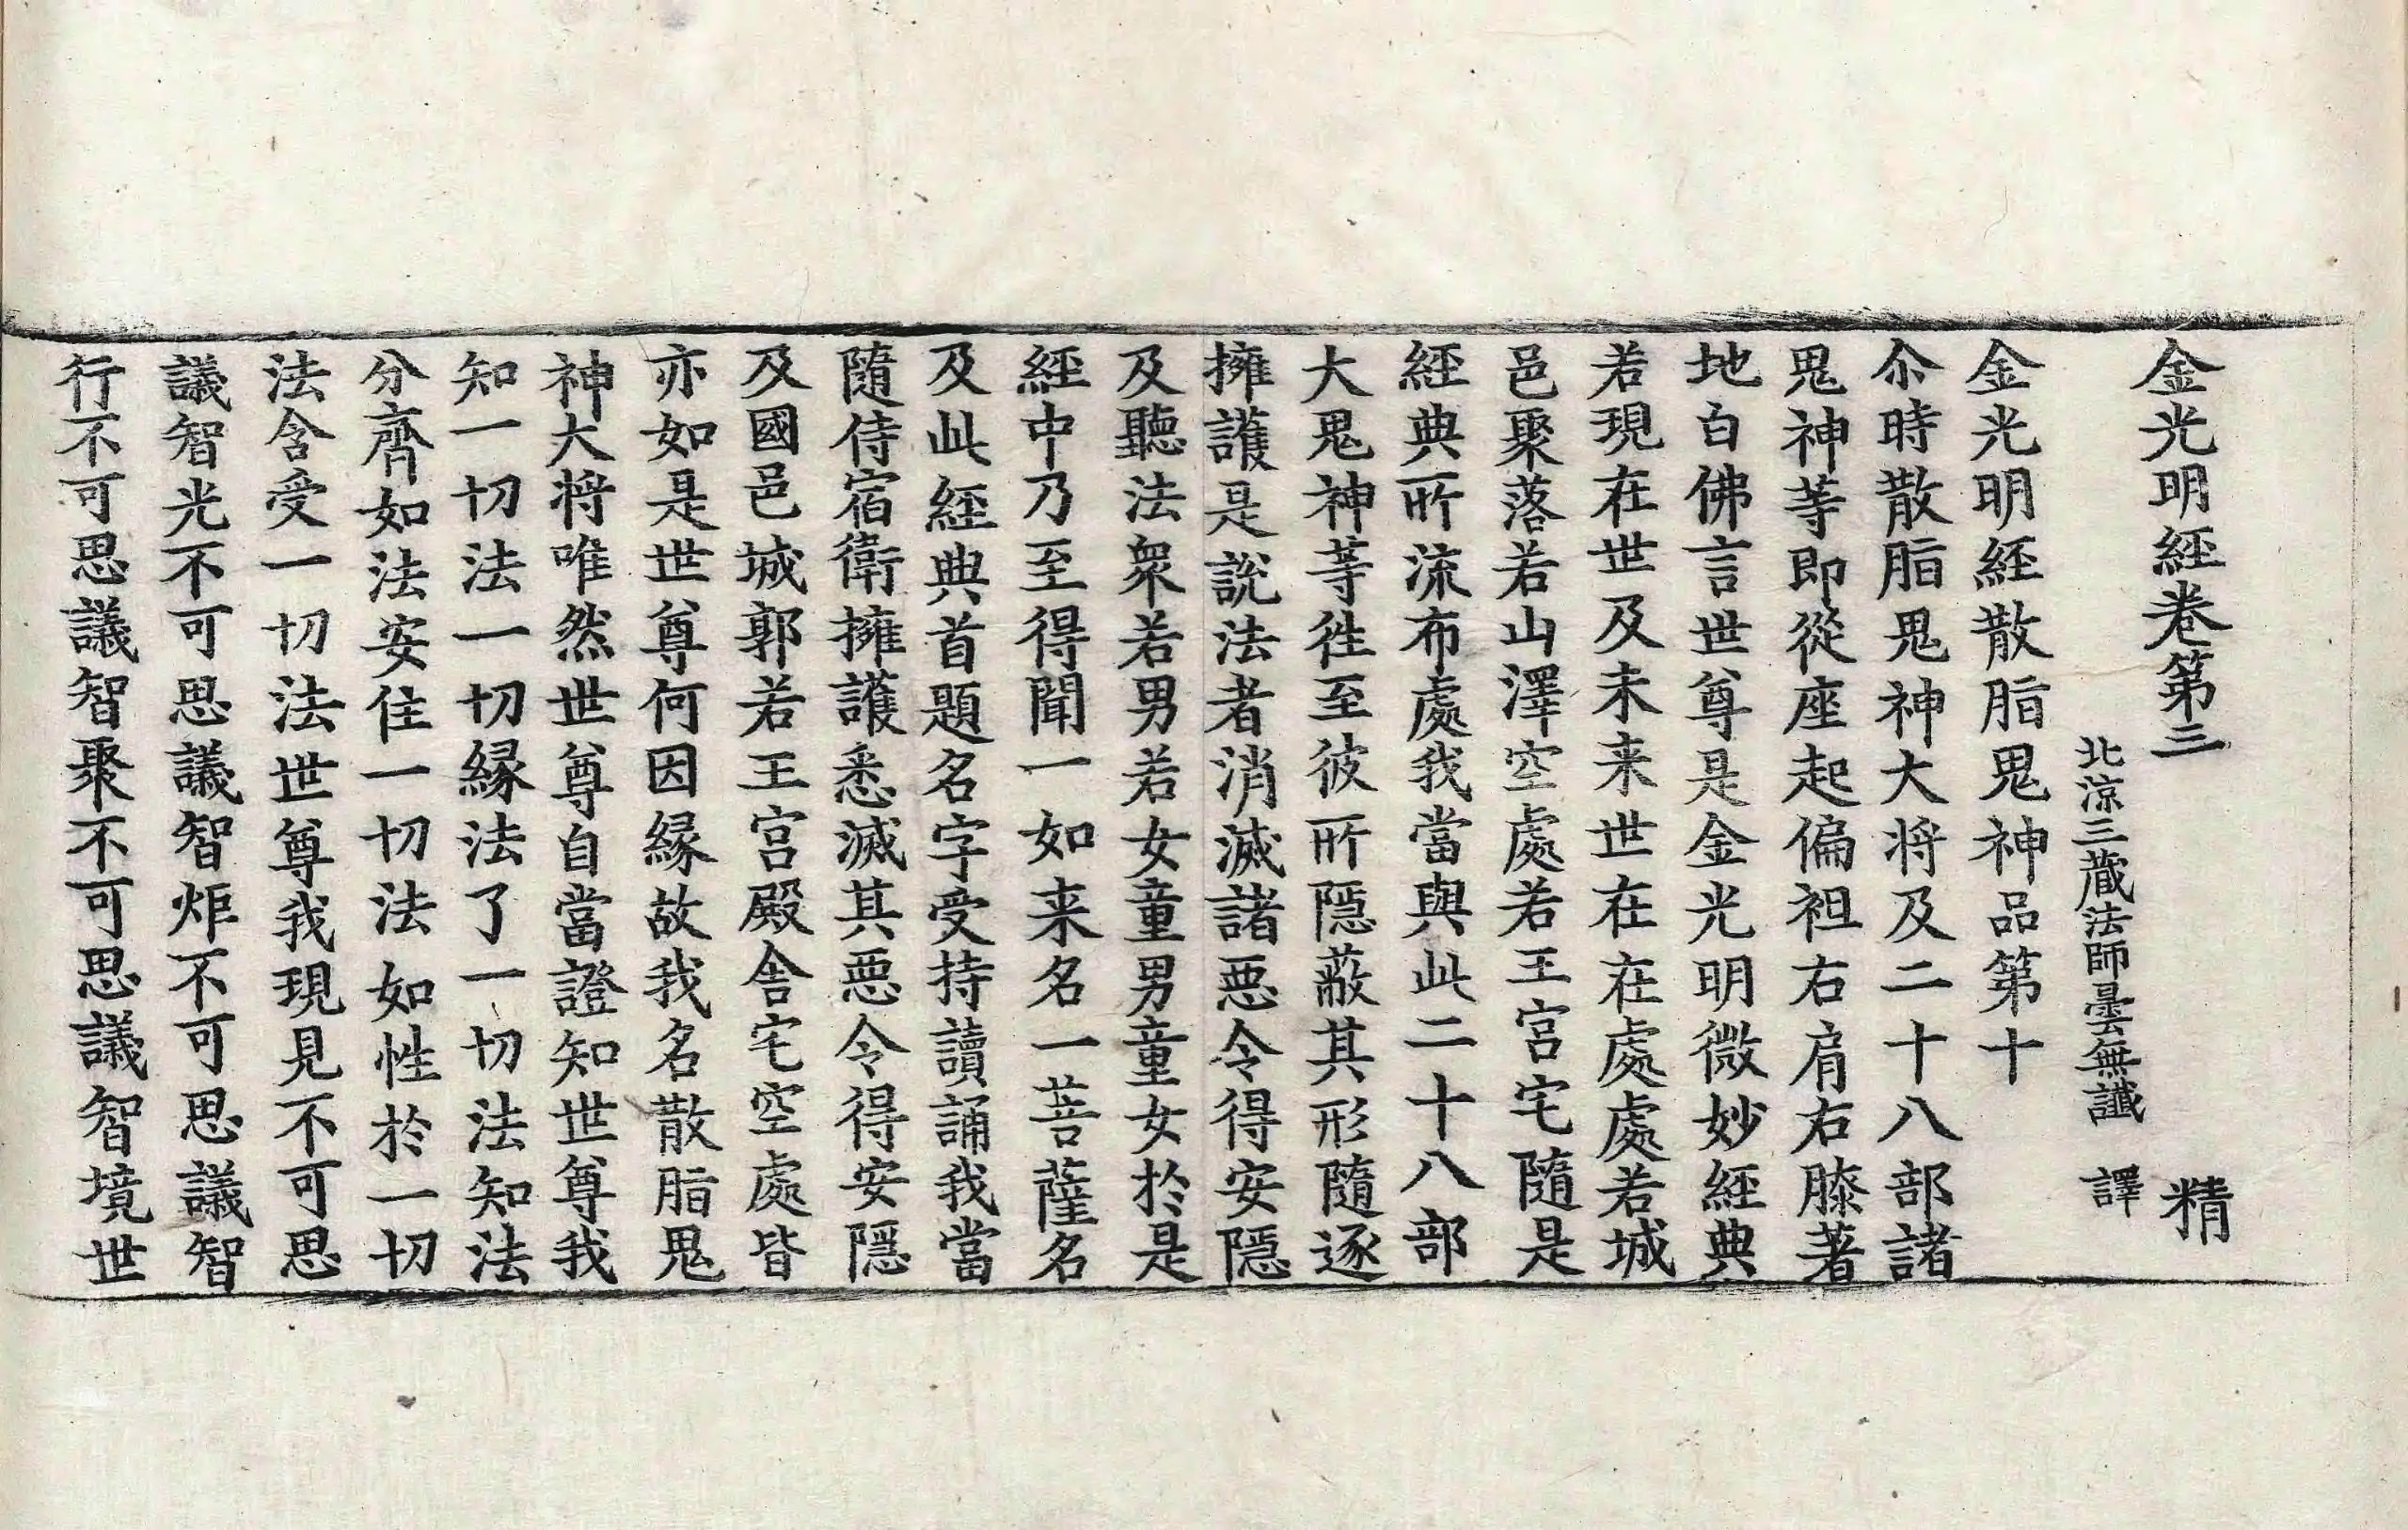 金光明經卷第三 精
北涼三藏法師曇無讖 譯
金光明經散脂鬼神品第十
尒時散脂鬼神大將及二十八部諸
鬼神等即從座起偏袒右肩右膝著
地白佛言世尊是金光明微妙經典
若現在世及未来世在在處處若城
邑聚落若山澤空處若王宮宅隨是
經典所流布處我當與此二十八部
大鬼神等往至彼所隱蔽其形隨逐
擁護是說法者消滅諸惡令得安隱
及聽法眾若男若女童男童女於是
經中乃至得聞一如来名一菩薩名
及此經典首題名字受持讀誦我當
隨侍宿衛擁護悉滅其惡令得安隱
及國邑城郭若王宮殿舍宅空處皆
亦如是世尊何因緣故我名散脂鬼
神大將唯然世尊自當證知世尊我
知一切法一切緣法了一切法知法
分齊如法安住一切法如性於一切
法含受一切法世尊我現見不可思
議智光不可思議智炬不可思議智
行不可思議智聚不可思議智境世